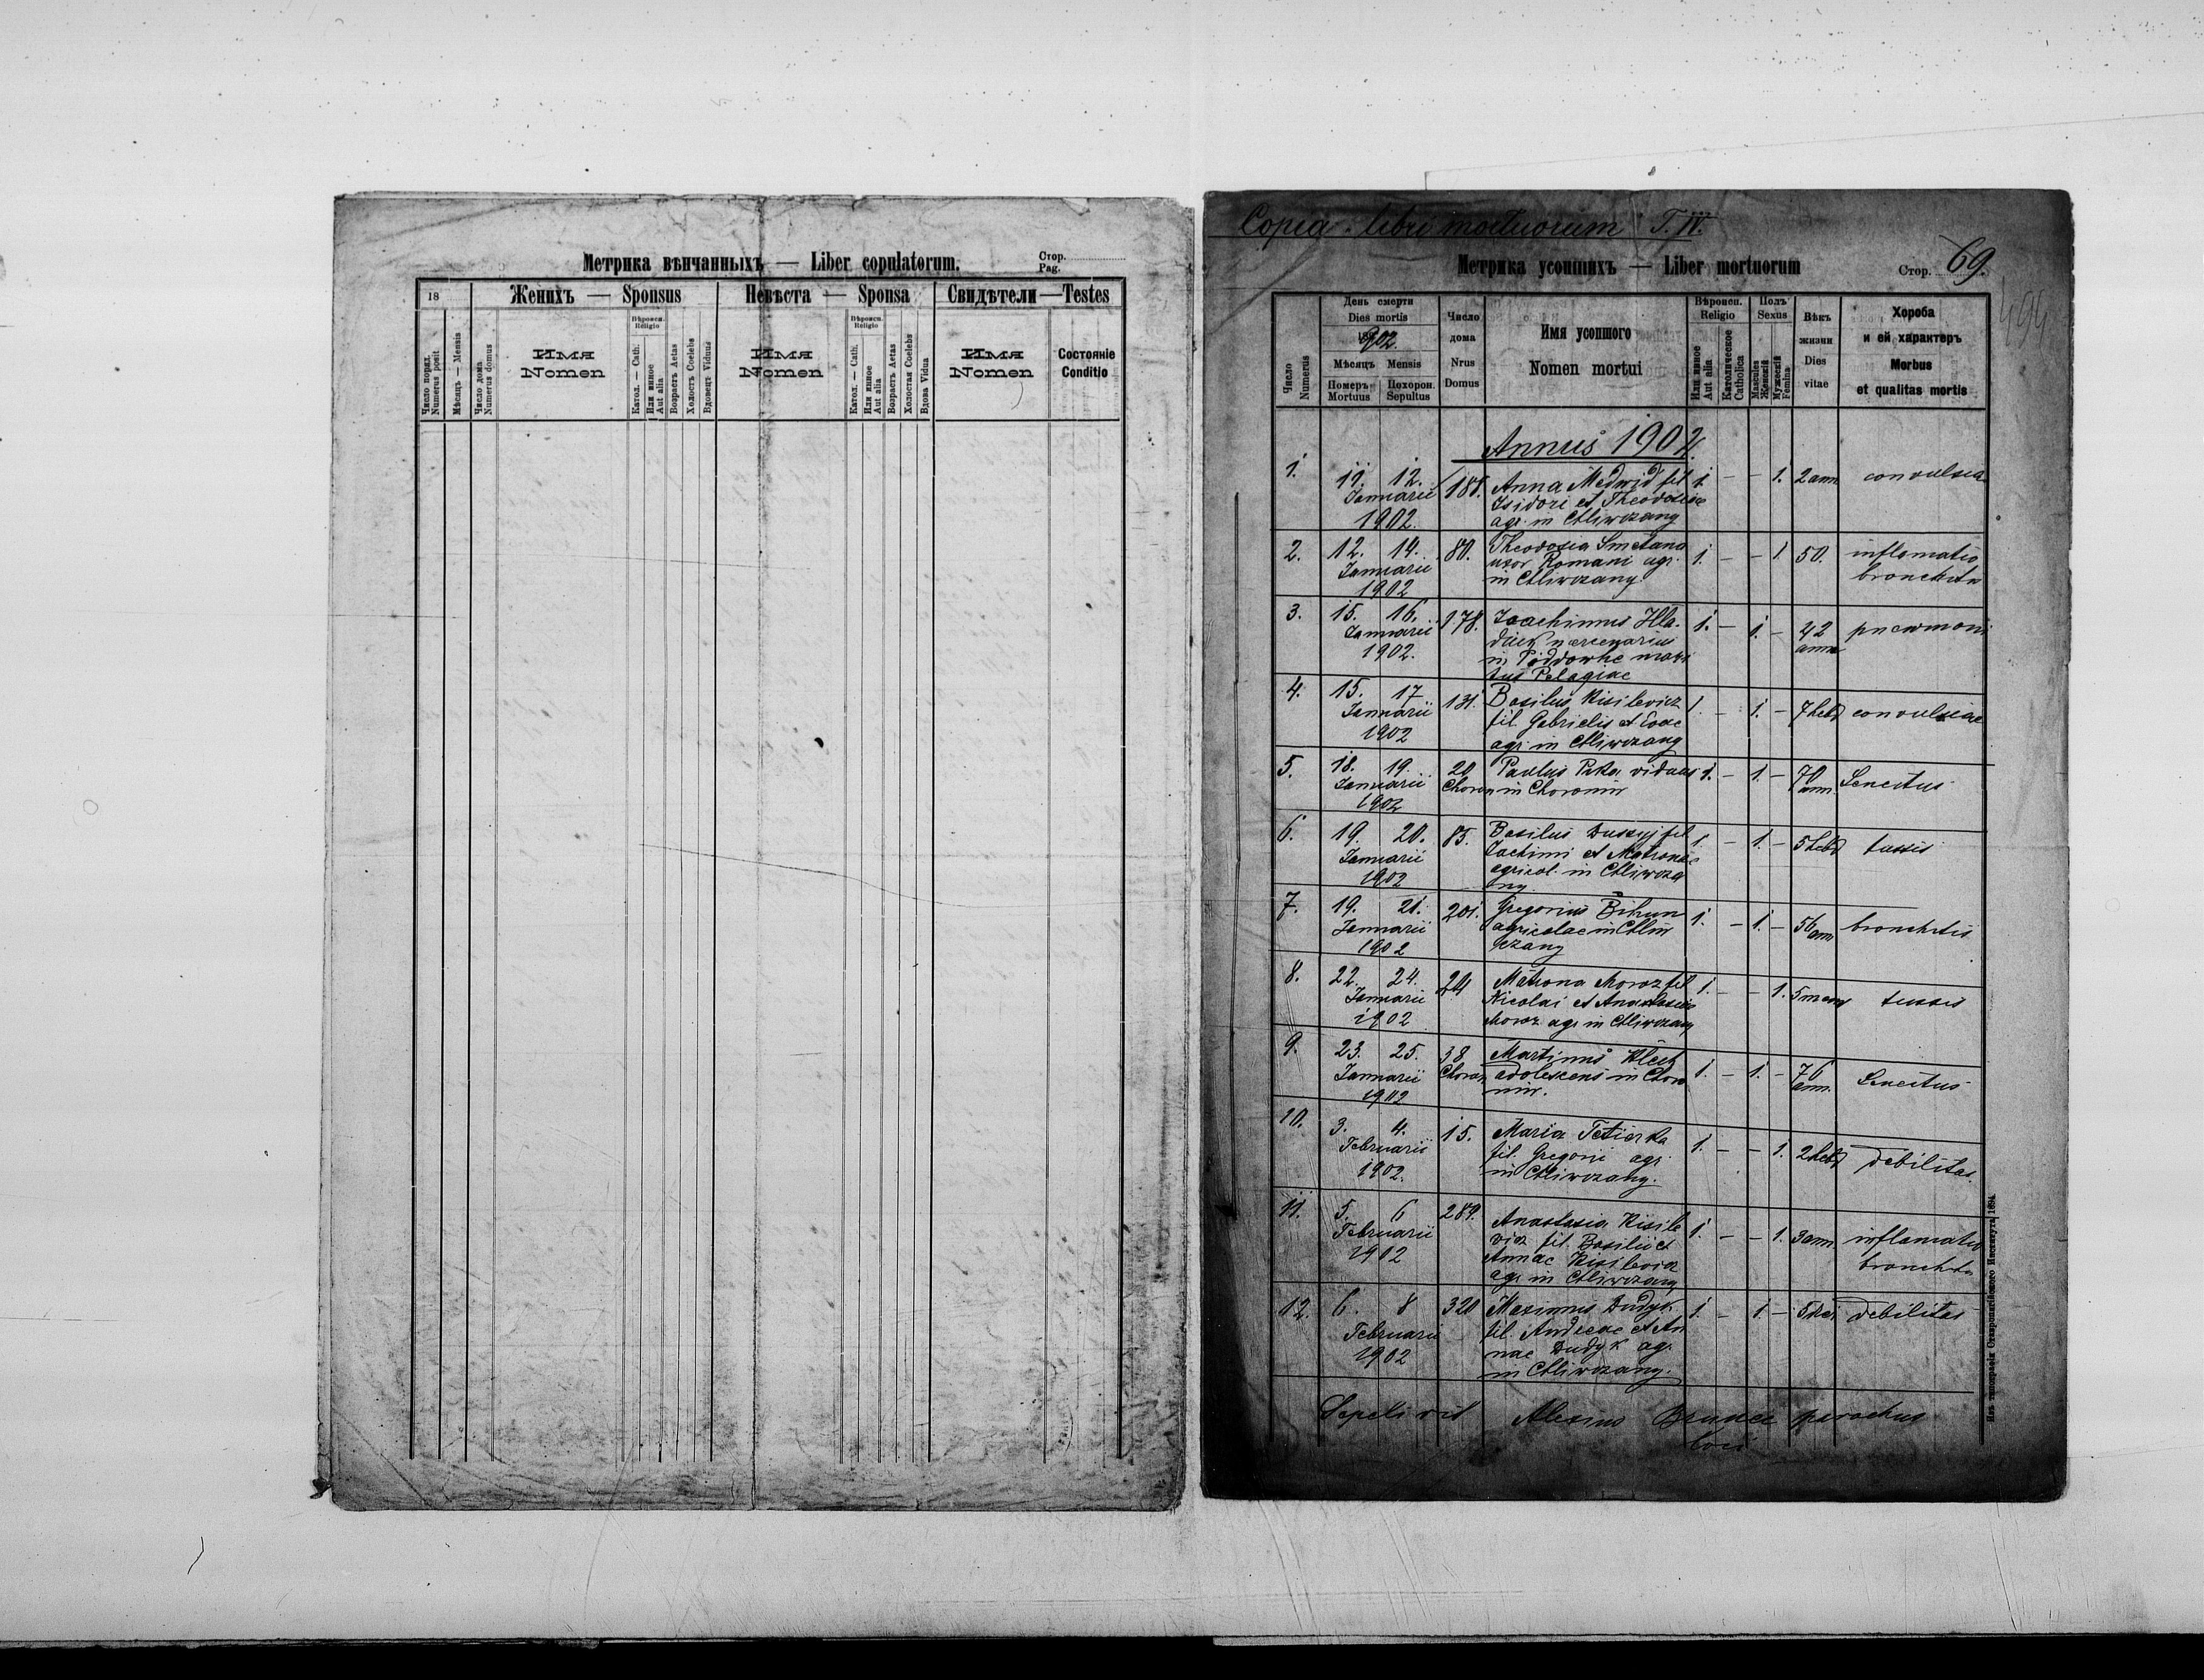 Метрика вѣнчанныхъ — Liber copulatorum.
Стор.
Pag.
18
Женихъ — Sponsus
Невѣста — Sponsa
Свидѣтели — Testes
Число поряд.
Numerus posit
Мѣсяць — Mensis
Число дома
Numerus domus
Имя
Nomen
Вѣроисп.
Religio
Катол. — Cath.
Или инное
Aut alia
Возрастъ Aetas
Холостъ Coelebs
Вдовецъ Viduus
Имя
Nomen
Вѣроисп.
Religio
Катол. — Cath.
Или инное
Aut alia
Возрастъ Aetas
Холостая Coelebs
Вдова Vidua
Имя
Nomen
Состояніе
Conditio
Copia libri mortuorum T. IV.
Метрика усопшихъ — Liber mortuorum
Стор. 69.
Число
Numerus
День смерти
Dies mortis
1902.
Мѣсяцъ Mensis
Померъ Mortuus
Похорон. Sepultus
Число
дома
Nrus
Domus
Имя усопшого
Nomen mortui
Вѣроисп.
Religio
Или инное
Aut alia
Католическое
Catholica
Полъ
Sexus
Masculus
Женскій
Мужескій
Femina
Вѣкъ
жизни
Dies
vitae
Хороба
и ей характеръ
Morbus
et qualitas mortis
Annus 1902.
1. 11. 12. 181. Anna Medwid fil 1. — — 1. 2 ann convulsia
Januarii Isidori et Theodosiae
1902. agr. in Chliwczany
2. 12. 14. 80. Theodosia Smetana 1. — — 1 50. inflamatio
Januarii uxor Romani agr. bronchitis
1902 in Chliwczany.
3. 15. 16. 178. Joachimus Hla- 1. — 1. — 42 pnewmoni
Januarii dick mercenarius ann
1902. in Piddowhe mari
tus Pelagiae
4. 15. 17 131. Basilius Kisilewicz 1. — 1. — 7 hebd convulsiae
Januarii fil. Gabrielis et Evae
1902 agr. in Chliwczany
5. 18. 19. 20 Paulus viduus 1. — 1. — 70 Senectus
Januarii Choron in Choronin ann.
1902
6. 19. 20. 85. Basilius fil 1. — 1. — 5 hebd tussis
Januarii Jachimi et Matronae
1902 agricol. in Chliwcza
any.
7. 19. 21. 201. Gregorius Bihun 1. — 1. — 56 ann bronchitis
Januarii agricolae in Chliw
1902 czany
8. 22. 24. 24 Matrona Moroz fil 1. — — 1. 5 mens tussis
Januarii Nicolai et Anastasiae
1902 Moroz agr in Chliwczany
9. 23. 25. 38 Martinus 1. — 1. — 76 Senectus
Januarii Choron adolescens in Choro ann.
1902 nin.
10. 3. 4. 15. Maria Tetierka 1. — — 1. 2 hebd debilitas.
Februarii fil. Gregorii agr.
1902. in Chliwczany.
11. 5. 6 289. Anastasia Kisile 1. — — 1. 3 ann. inflamatio
Februarii vicz fil. Basilii et bronchitis
1902 Annae Kisilevicz
agr in Chliwczany
12. 6. 8 320 Maximus Dudyk 1. — 1. — 5 debilitas
Februarii fil. Andreae et An
1902 nae Dudyk agr.
in Chliwczany.
Sepelivit Alexius parochus
loci
Изъ типографіи Ставропигійского Института 189